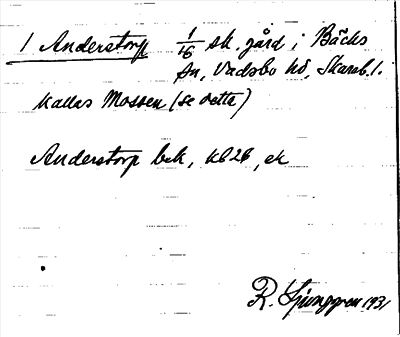 1 Anderstorp 1/16 sk. gård i Bäcks
sn, Vadsbo hd, Skarab. l.
Kallas Mossen (se detta)
Anderstorp bek, KB2B, ek
R. Ljunggren 1931